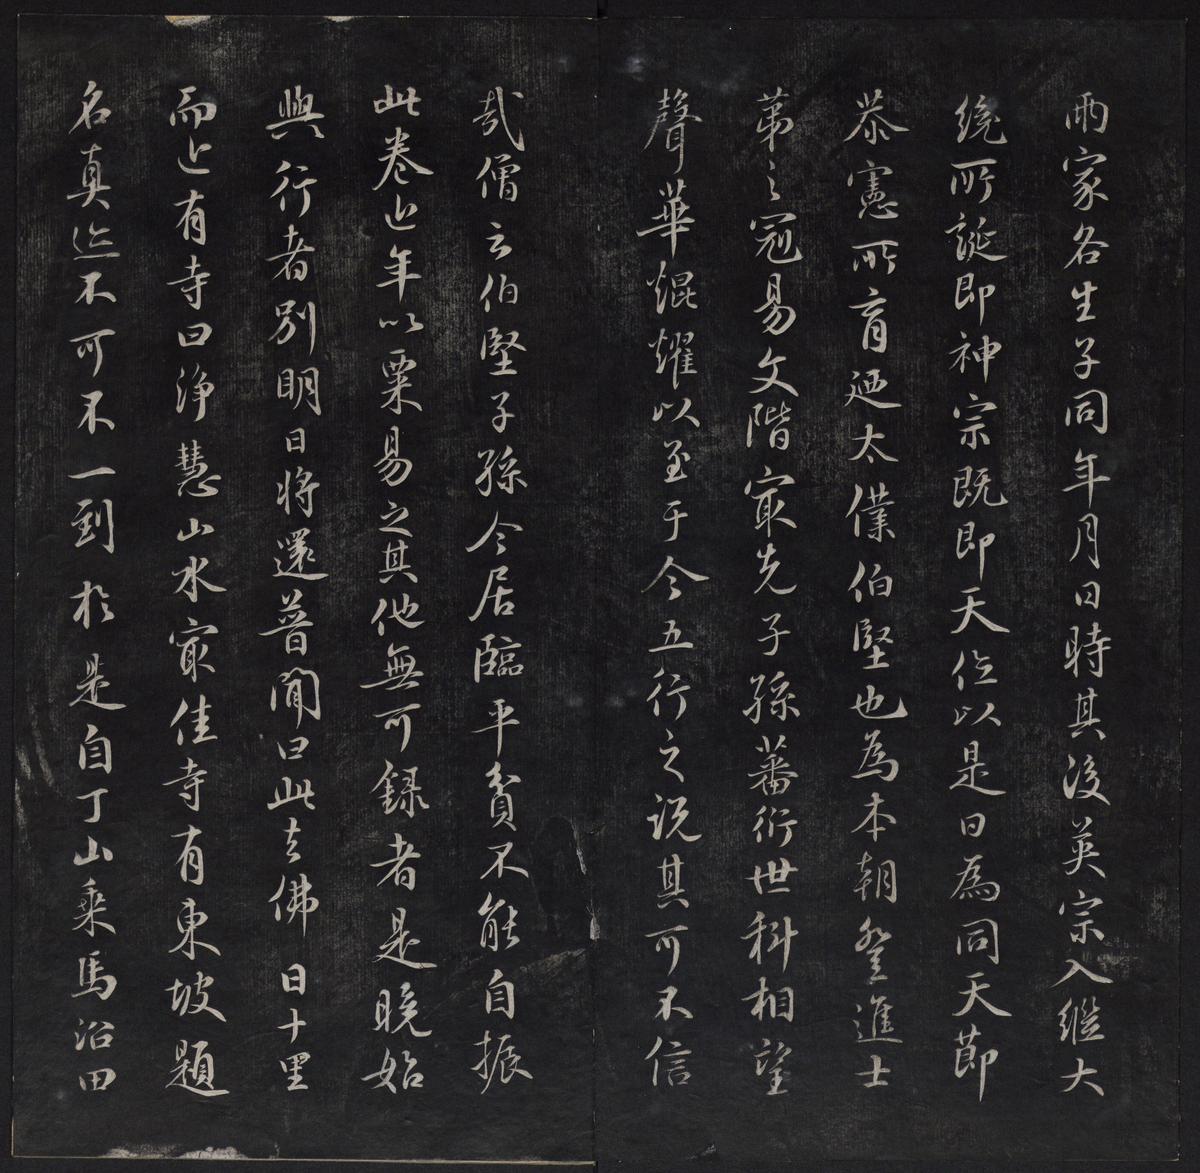 兩家各生子同年月日時其後英宗入繼大
統所誕即神宗既即天位以是日為同天節
恭憲所育迺太僕伯堅也為本朝登進士
第之冠易文階寂先子孫蕃衍世科相望
聲華焜耀以至于今五行之說其可不信
哉僧云伯堅子孫今居臨平貧不能自振
此卷近年以粟易之其他無可錄者是晚始
與行者別明日將還普聞曰此去佛日十里
而近有寺曰淨慧山水寂佳寺有東坡題
名真迹不可不一到於是自丁山乘馬沿田